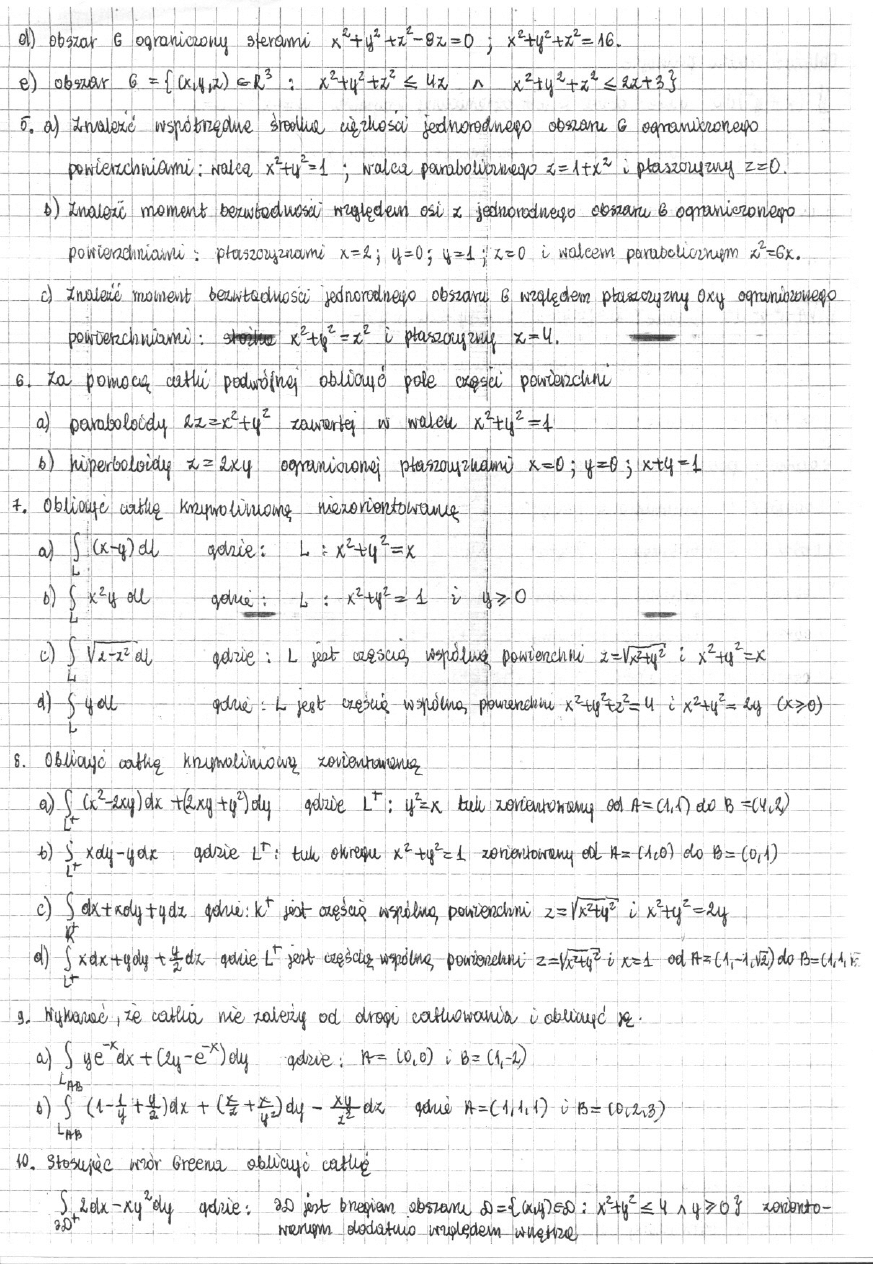 d) obszar G ograniczony sferami x²+y²+z²-8z=0 ; x²+y²+z²=16.
e) obszar G = {(x,y,z)∈R³ : x²+y²+z² ≤ 4z ∧ x²+y²+z² ≤ 2z+3}
5. a) Znaleźć współrzędne środka ciężkości jednorodnego obszaru G ograniczonego
powierzchniami: walca x²+y²=1 ; walca parabolicznego z=1+x² i płaszczyzny z=0.
b) Znaleźć moment bezwładności względem osi z jednorodnego obszaru G ograniczonego
powierzchniami : płaszczyznami x=2; y=0; y=1; z=0 i walcem parabolicznym z²=6x.
c) Znaleźć moment bezwładności jednorodnego obszaru G względem płaszczyzny Oxy ograniczonego
powierzchniami : x²+y²=z² i płaszczyzny z=4.
6. Za pomocą całki podwójnej obliczyć pole części powierzchni
a) paraboloidy 2z=x²+y² zawartej w walcu x²+y²=1
b) hiperboloidy z=2xy ograniczonej płaszczyznami x=0 ; y=0 ; x+y=1
7. Obliczyć całkę krzywoliniową niezorientowaną
a) ∫ (x-y) dl gdzie : L : x²+y²=x
L
b) ∫ x²y dl gdzie : L : x²+y²=1 i y≥0
L
c) ∫ √z-z² dl gdzie : L jest częścią wspólną powierzchni z=√x²+y² i x²+y²=x
L
d) ∫ y dl gdzie : L jest częścią wspólną powierzchni x²+y²+z²=4 i x²+y²=2y (x≥0)
L
8. Obliczyć całkę krzywoliniową zorientowaną
a) ∫ (x²-2xy)dx +(2xy+y²)dy gdzie L⁺: y²=x łuk zorientowany od A=(1,1) do B=(4,2)
L⁺
b) ∫ xdy-ydx gdzie L⁺: łuk okręgu x²+y²=1 zorientowany od A=(1,0) do B=(0,1)
L⁺
c) ∫ dx+xdy+ydz gdzie: K⁺ jest częścią wspólną powierzchni z=√x²+y² i x²+y²=2y
K⁺
d) ∫ xdx+ydy+y/2 dz gdzie L⁺ jest częścią wspólną powierzchni z=√x²+y² i x=1 od A=(1,-1,√2) do B=(1,1,
L⁺
9. Wykazać, że całka nie zależy od drogi całkowania i obliczyć ją.
a) ∫ ye⁻ˣdx + (2y-e⁻ˣ)dy gdzie : A=(0,0) i B=(1,-2)
L_AB
b) ∫ (1-1/y+y/z)dx + (x/z+x/y²)dy - xy/z² dz gdzie A=(1,1,1) i B=(0,2,3)
L_AB
10. Stosując wzór Greena obliczyć całkę
∫ 2dx-xy²dy gdzie: ∂D jest brzegiem obszaru D={(x,y)∈D : x²+y²≤4 ∧ y≥0} zoriento-
∂D⁺ wanym dodatnio względem wnętrza